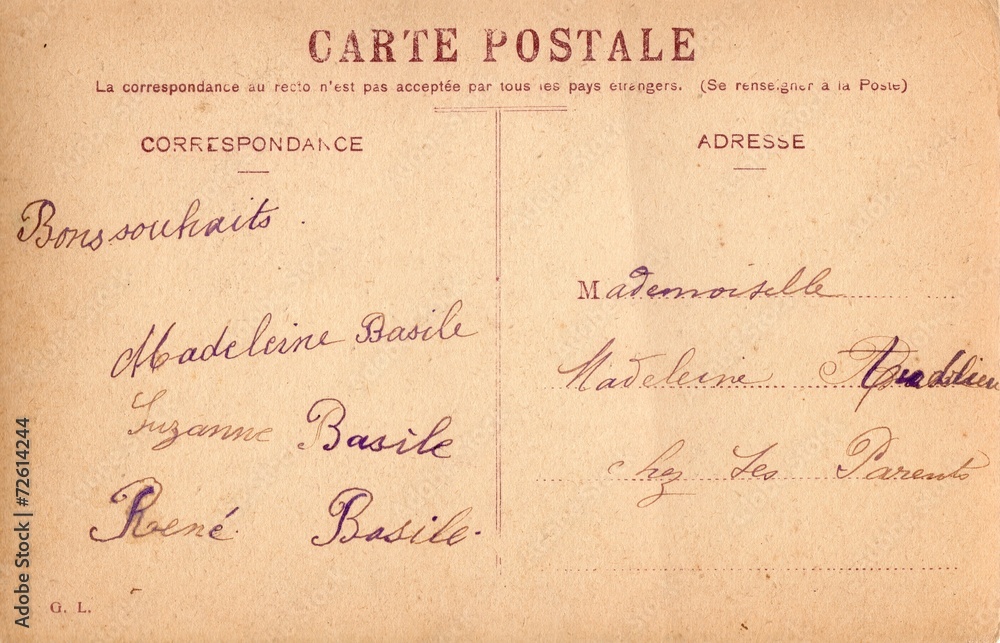 CARTE POSTALE
La correspondance au recto n'est pas acceptée par tous les pays etrangers. (Se renseigner à la Poste)
CORRESPONDANCE
Bons souhaits.
Madeleine Basile
Suzanne Basile
René Basile.
G. L.
ADRESSE
Mademoiselle
Madeleine
chez Ses Parents
Adobe Stock | #72614244